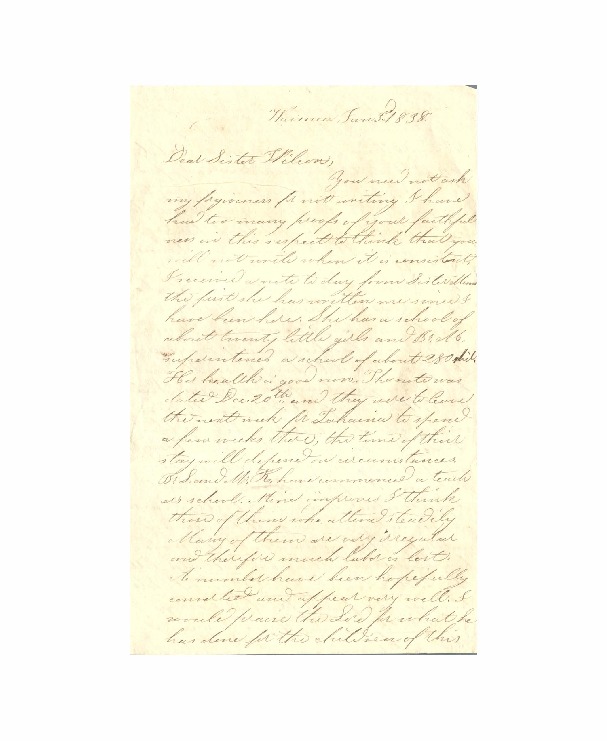 Waimea Jan 3d 1838.
Dear Sister Wilcox,
You need not ask
my forgiveness for not writing I have
had too many proofs of your faithful
ness in this respect to think that you
will not write when it is consistent.
I received a note to day from Sister
the first she has written me since I
have been here. She has a school of
about twenty little girls and Br. Mc.
superintends a school of about 280 child
Her health is good now. The note was
dated Dec. 20th and they were to leave
the next week for Lahaina to spend
a few weeks there, the time of their
stay will depend on circumstances
Br. L and Mr. K. have commenced a teach
ers school. Mine improves I think
those of them who attend steadily
Many of them are very irregular
and therefore much labor is lost.
A number have been hopefully
converted and appear very well. I
would praise the Lord for what he
has done for the children of this